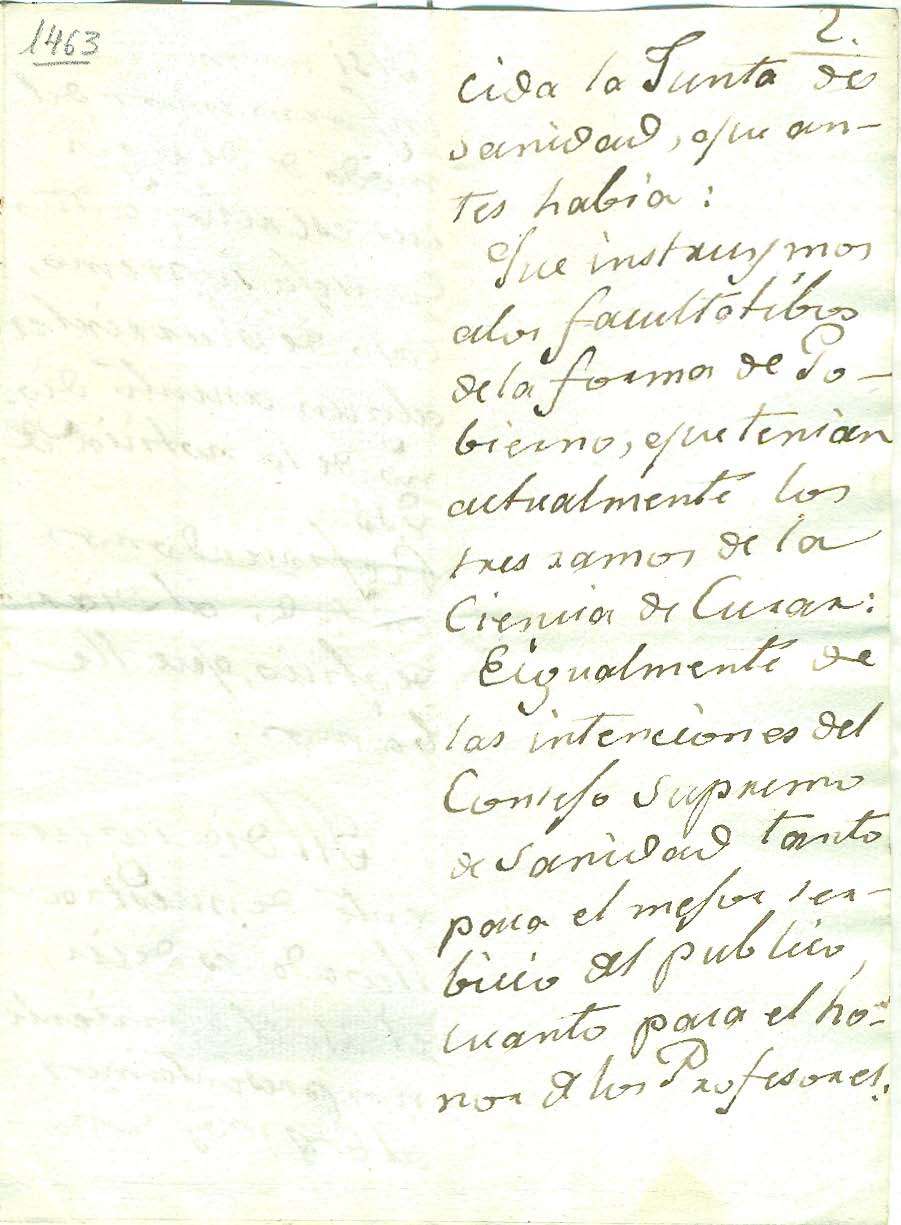 1463
2.
cida la Junta de
sanidad, que an-
tes habia:
Que instruymos
a los facultatibos
de la forma de Go-
bierno, que tenian
actualmente los
tres ramos de la
Ciencia de Curar:
E igualmente de
las intenciones del
Consejo Supremo
de Sanidad tanto
para el mejor ser-
bicio del publico,
cuanto para el ho-
nor de los Profesores.